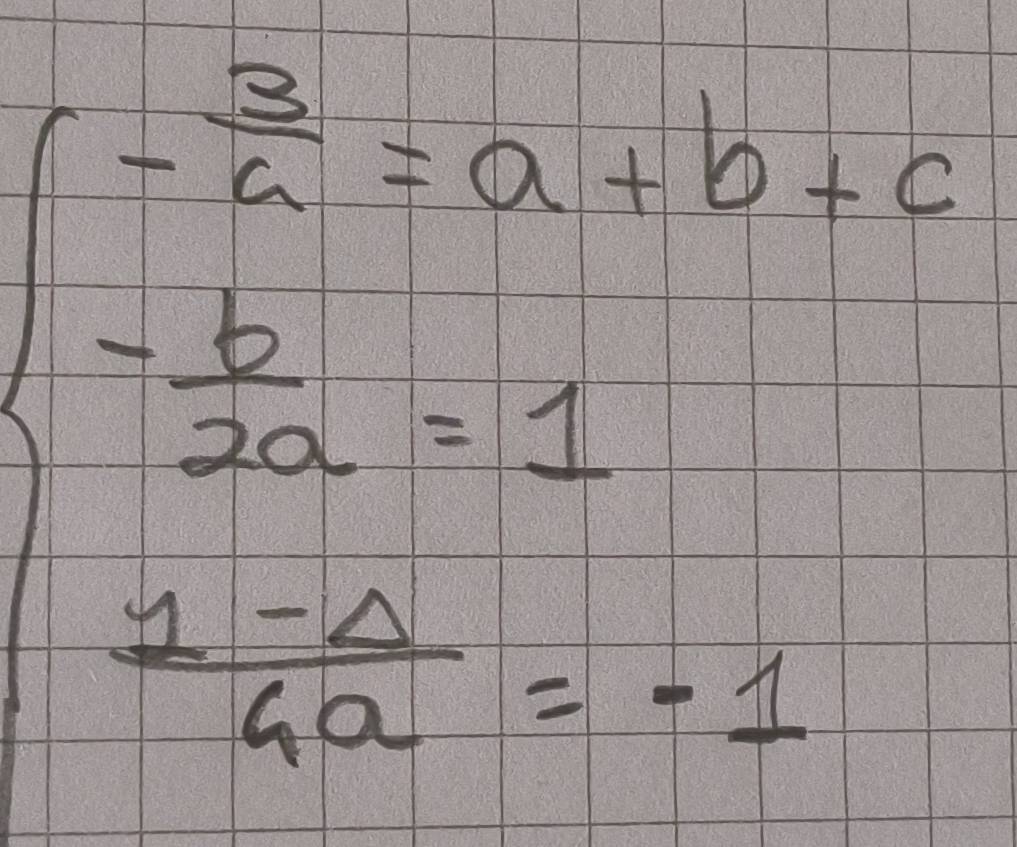 - 3/a = a + b + c
- b/2a = 1
1 - Δ/4a = - 1